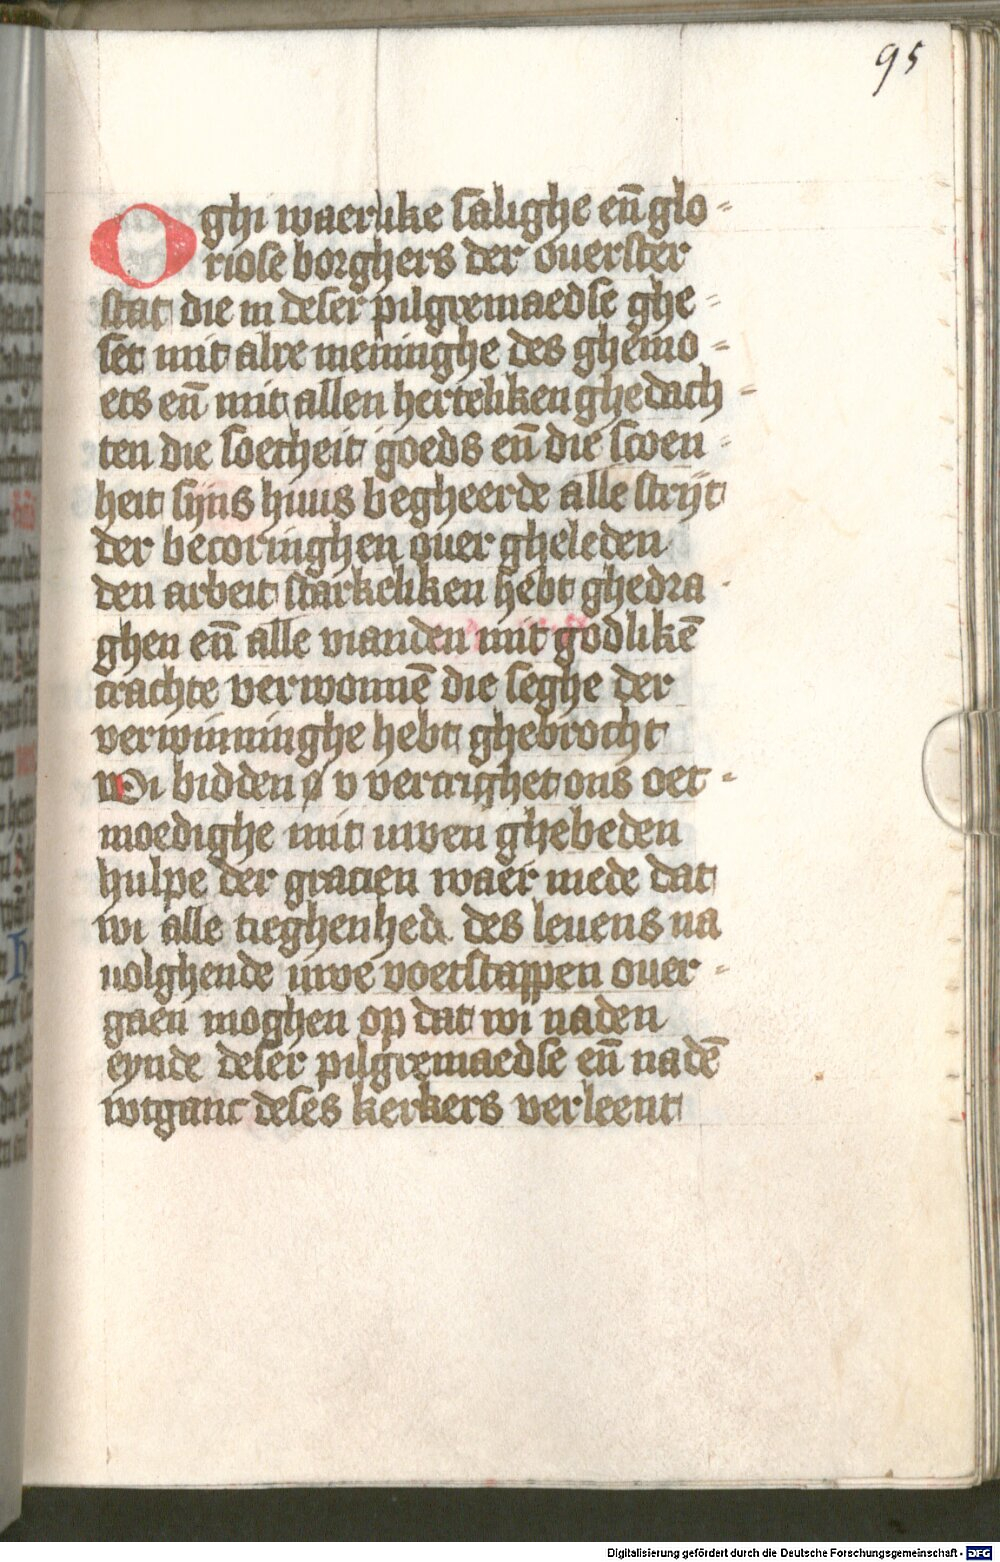 95
O ghi waerlike salighe en̄ glo⸗
riose borghers der ouerster
stat die in deser pilgremaedse ghe⸗
set mit alre meninghe des ghemo⸗
ets en̄ mit allen herteliken ghedach⸗
ten die soetheit goeds en̄ die scoen⸗
heit sijns huus begheerde alle strijt
der becoringhen ouer gheleden
den arbeit starkeliken hebt ghedra⸗
ghen en̄ alle vianden mit godlikē
crachte verwonnē die seghe der
verwinninghe hebt ghebrocht
Wi bidden v vercrighet ons oet⸗
moedighe mit uwen ghebeden
hulpe der gracien waer mede dat
wi alle tieghenhed des leuens na
uolghende uwe voetstappen ouer⸗
gaen moghen op dat wi naden
eynde deser pilgremaedse en̄ nadē
wtganc deses kerkers verleent
Digitalisierung gefördert durch die Deutsche Forschungsgemeinschaft - DFG